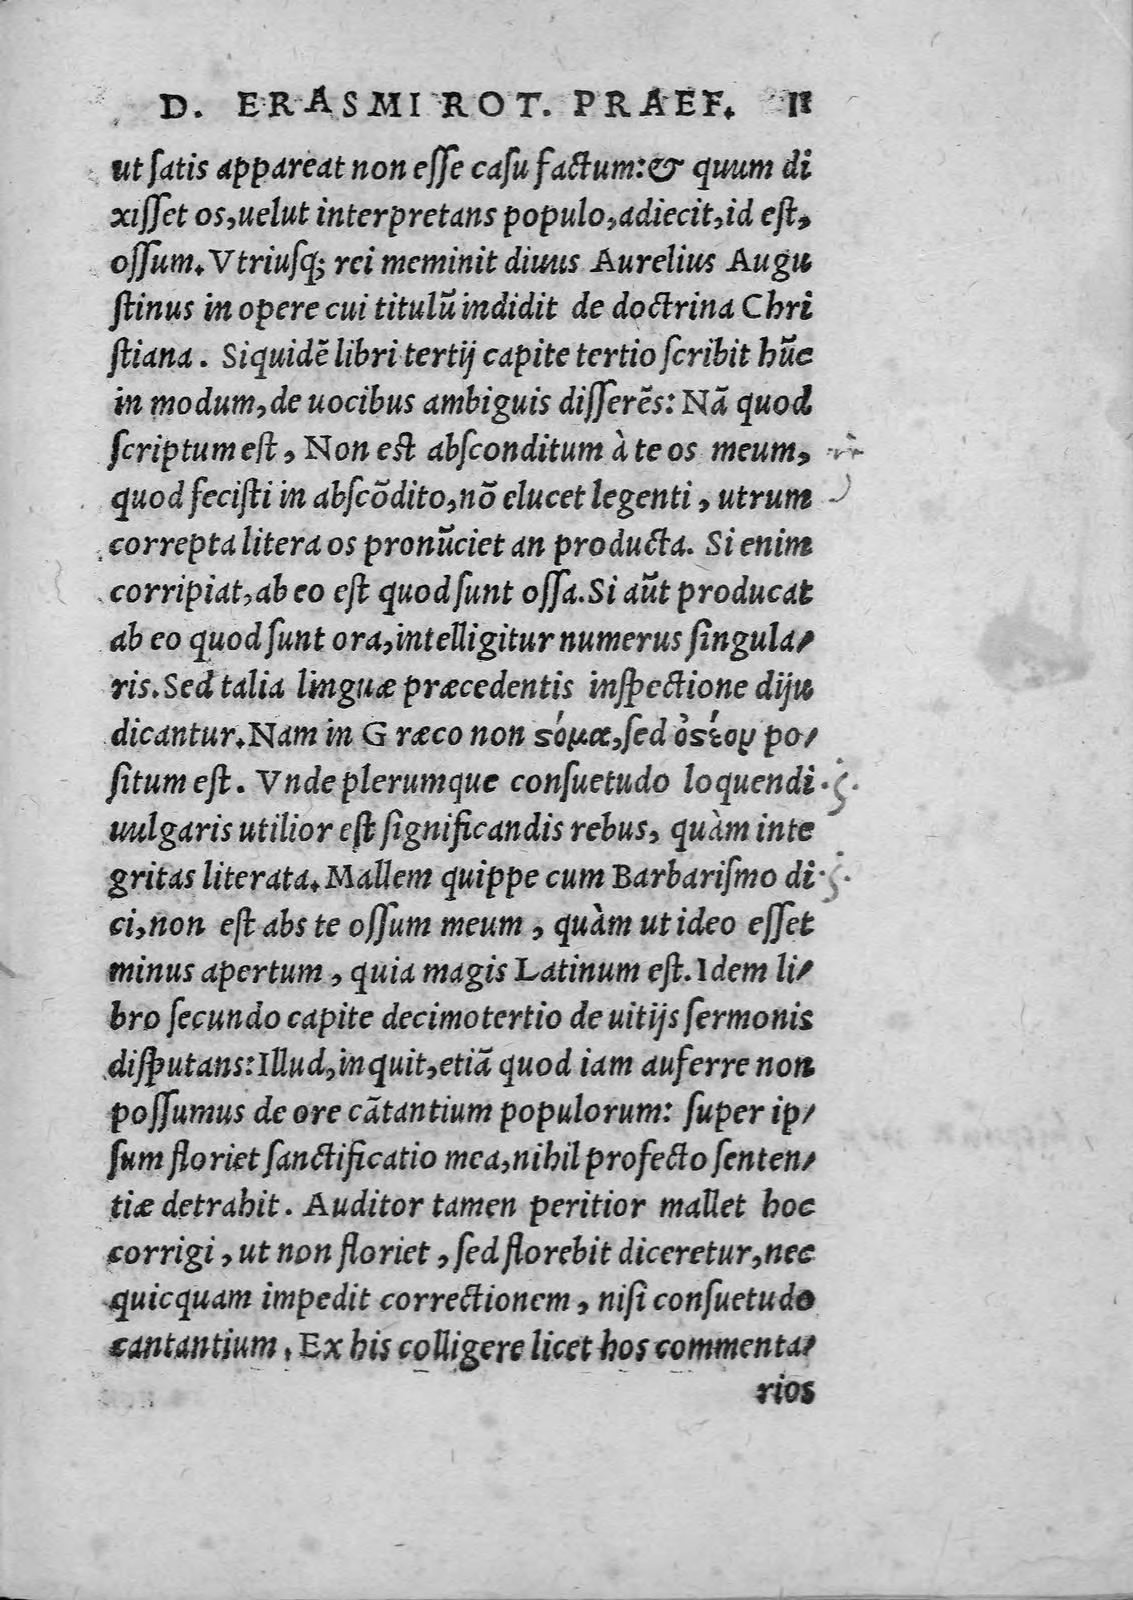 D. ERASMI ROT. PRAEF. 11
ut ſatis appareat non eſſe caſu factum: & quum di
xiſſet os, uelut interpretans populo, adiecit, id eſt,
oſſum. Vtriuſq; rei meminit diuus Aurelius Augu
ſtinus in opere cui titulũ indidit de doctrina Chri
ſtiana. Siquidẽ libri tertij capite tertio ſcribit hũc
in modum, de uocibus ambiguis differẽs: Nã quod
ſcriptum eſt, Non est abſconditum à te os meum,
quod feciſti in abſcõdito, nõ elucet legenti, utrum
correpta litera os pronũciet an producta. Si enim
corripiat, ab eo eſt quod ſunt oſſa. Si aũt producat
ab eo quod ſunt ora, intelligitur numerus ſingula⸗
ris. Sed talia linguæ præcedentis inſpectione diju
dicantur. Nam in Græco non ϛόμα, ſed ὀϛέομ po⸗
ſitum eſt. Vnde plerumque conſuetudo loquendi
uulgaris utilior eſt ſignificandis rebus, quàm inte
gritas literata. Mallem quippe cum Barbariſmo di
ci, non eſt abs te oſſum meum, quàm ut ideo eſſet
minus apertum, quia magis Latinum eſt. Idem li⸗
bro ſecundo capite decimotertio de uitijs ſermonis
diſputans: Illud, inquit, etiã quod iam auferre non
poſſumus de ore cãtantium populorum: ſuper ip⸗
ſum floriet ſanctificatio mea, nihil profecto ſenten⸗
tiæ detrahit. Auditor tamen peritior mallet hoc
corrigi, ut non floriet, ſed florebit diceretur, nec
quicquam impedit correctionem, niſi conſuetudo
cantantium. Ex his colligere licet hos commenta⸗
rios